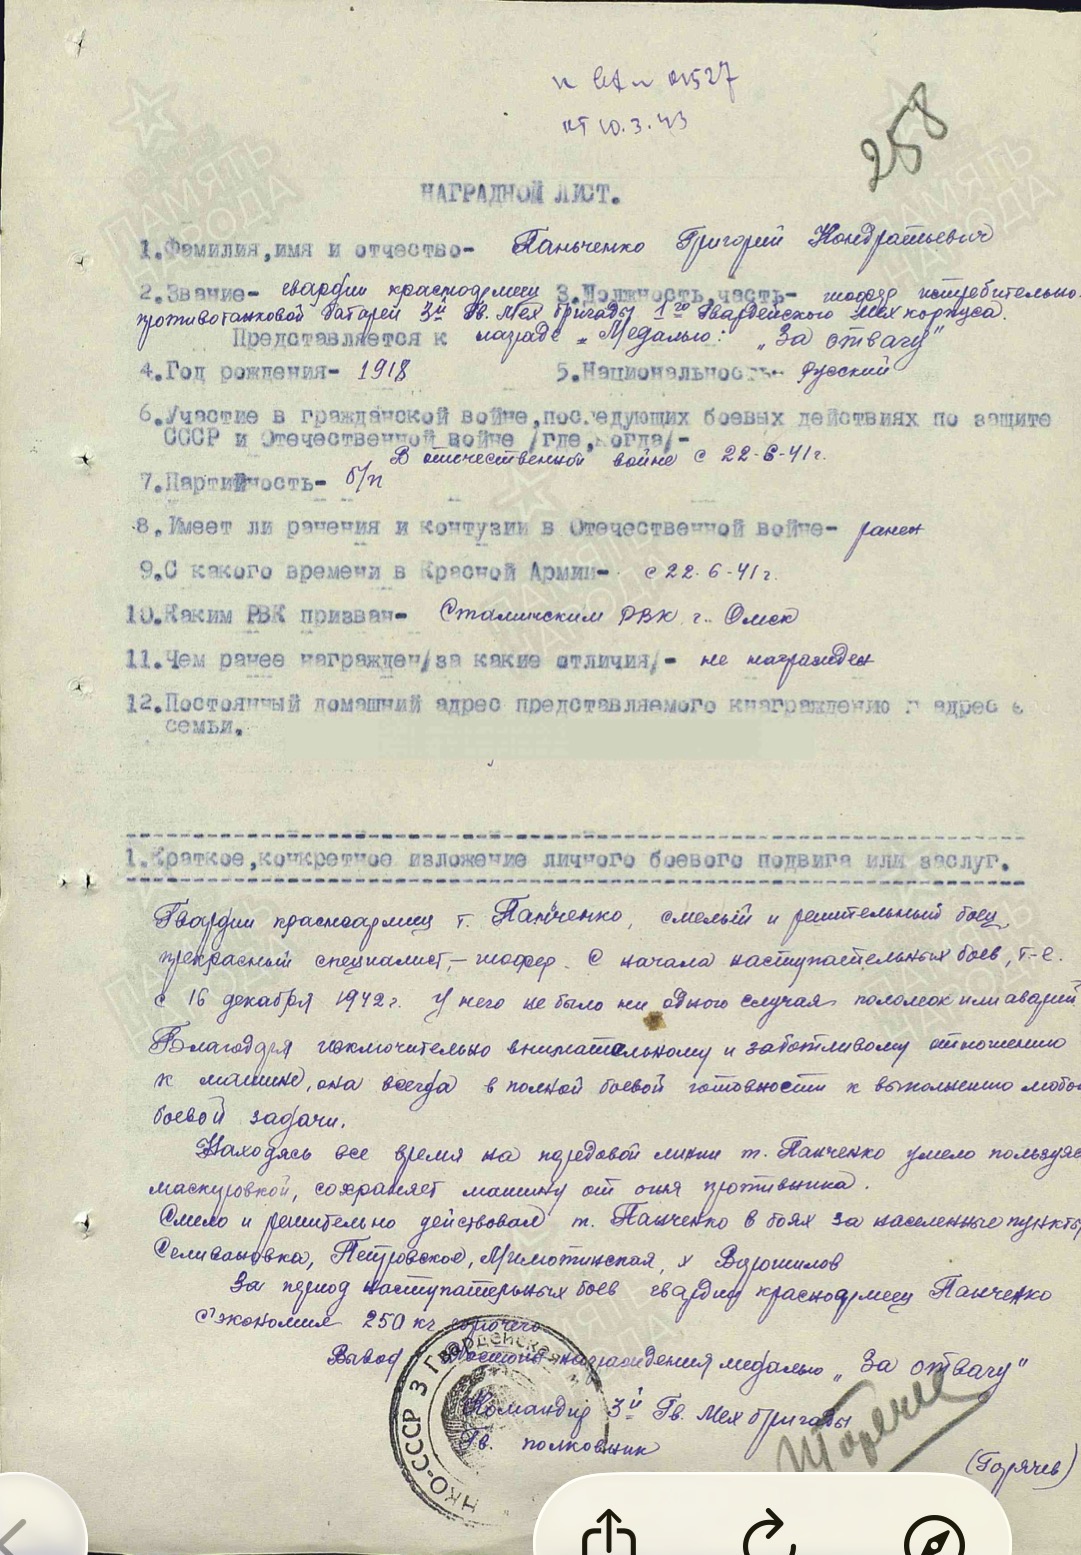 258
10.3.43
НАГРАДНОЙ ЛИСТ.
1.Фамилия,имя и отчество- Паньченко Григорий Кондратьевич
2.Звание- гвардии красноармеец 3.Должность,часть- шофер истребительно-
противотанковой батареи 3й Гв. Мех бригады 1го Гвардейского Мех корпуса.
Представляется к награде „Медалью: „За отвагу"
4.Год рождения- 1918 5.Национальность- русский
6.Участие в гражданской войне,последующих боевых действиях по защите
СССР и Отечественной войне /где,когда/-
В отечественной войне с 22-6-41г.
7.Партийность- б/п
8.Имеет ли ранения и контузии в Отечественной войне- ранен
9.С какого времени в Красной Армии- с 22.6-41г.
10.Каким РВК призван- Сталинским РВК г. Омск
11.Чем ранее награжден/за какие отличия/- не награжден
12.Постоянный домашний адрес представляемого кнаграждению и адрес е
семьи.
1.Краткое,конкретное изложение личного боевого подвига или заслуг.
Гвардии красноармеец т. Панченко, смелый и решительный боец,
прекрасный специалист,-шофер. С начала наступательных боев, т-е.
с 16 декабря 1942г. У него не было ни одного случая поломок или аварий
Благодаря исключительно внимательному и заботливому отношению
к машине, она всегда в полной боевой готовности к выполнению любо
боевой задачи.
Находясь все время на передовой линии т. Панченко умело пользуяс
маскировкой, сохраняет машину от огня противника.
Смело и решительно действовал т. Панченко в боях за населенные пункты
Селивановка, Петровское, Милютинская, х Ворошилов
За период наступательных боев гвардии красноармеец Панченко
с'экономил 250 кг горючего
Вывод Достоин награждения медалью „За отвагу"
Командир 3й Гв. Мех бригады
Гв. полковник
(Горячев)
НКО-СССР 3 Гвардейская
ПАМЯТЬ НАРОДА